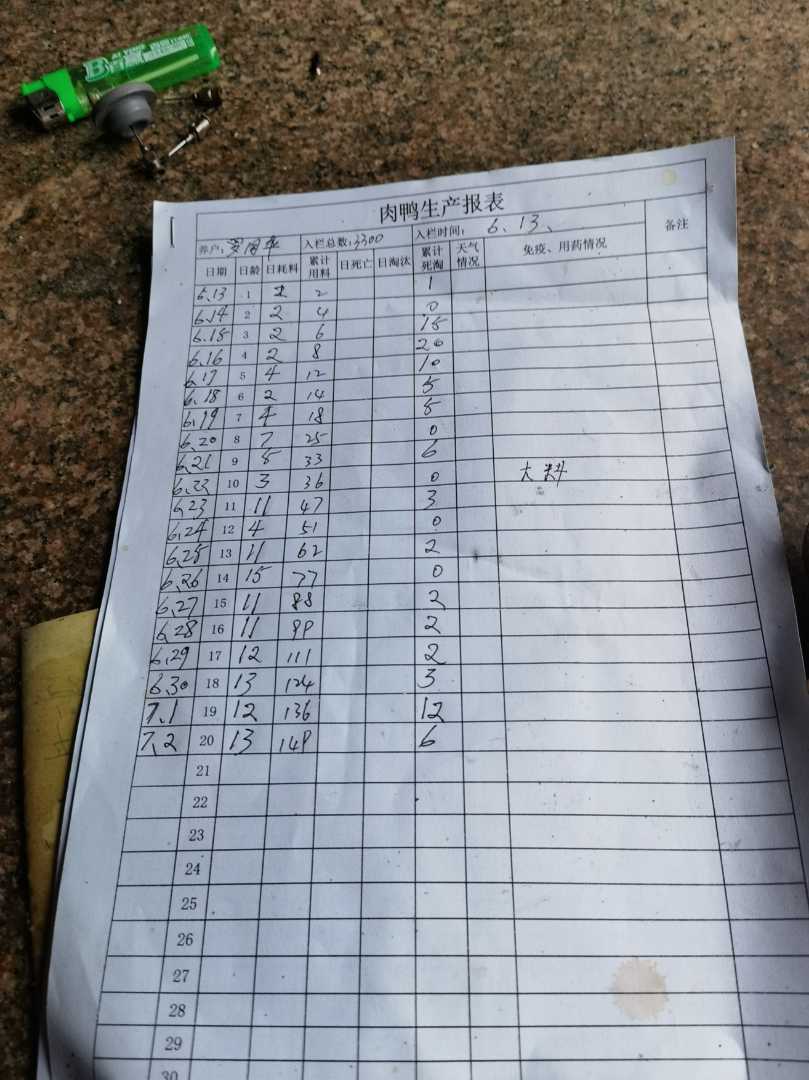 肉鸭生产报表
养户: 入栏总数:3300 入栏时间: 6.13、 备注
日期 日龄 日耗料 累计用料 日死亡 日淘汰 累计死淘 天气情况 免疫、用药情况
6.13 1 2 2 1
6.14 2 2 4 0
6.15 3 2 6 15
6.16 4 2 8 20
6.17 5 4 12 10
6.18 6 2 14 5
6.19 7 4 18 5
6.20 8 7 25 0
6.21 9 8 33 6
6.22 10 3 36 0 大料
6.23 11 11 47 3
6.24 12 4 51 0
6.25 13 11 62 2
6.26 14 15 77 0
6.27 15 11 88 2
6.28 16 11 99 2
6.29 17 12 111 2
6.30 18 13 124 3
7.1 19 12 136 12
7.2 20 13 149 6
21
22
23
24
25
26
27
28
29
30